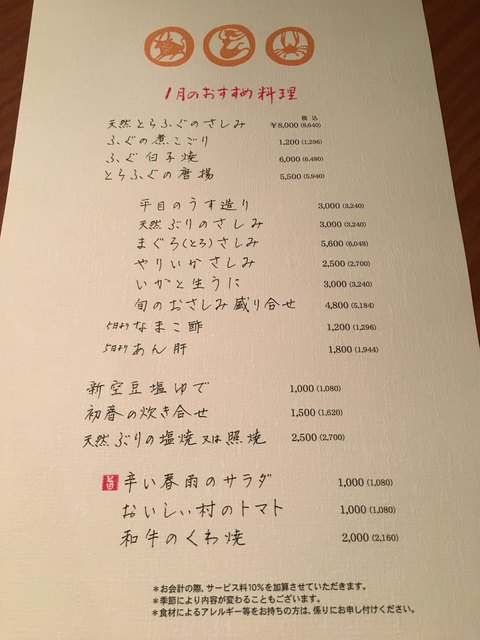 1月のおすすめ料理
税込
天然とらふぐのさしみ ¥8,000 (8,640)
ふぐの煮こごり 1,200 (1,296)
ふぐ白子焼 6,000 (6,480)
とらふぐの唐揚 5,500 (5,940)
平目のうす造り 3,000 (3,240)
天然ぶりのさしみ 3,000 (3,240)
まぐろ(とろ)さしみ 5,600 (6,048)
やりいかさしみ 2,500 (2,700)
いかと生うに 3,000 (3,240)
旬のおさしみ盛り合せ 4,800 (5,184)
5日より なまこ酢 1,200 (1,296)
5日より あん肝 1,800 (1,944)
新空豆塩ゆで 1,000 (1,080)
初春の炊き合せ 1,500 (1,620)
天然ぶりの塩焼又は照焼 2,500 (2,700)
旨 辛い春雨のサラダ 1,000 (1,080)
おいしい村のトマト 1,000 (1,080)
和牛のくわ焼 2,000 (2,160)
＊お会計の際、サービス料10%を加算させていただきます。
＊季節により内容が変わることもございます。
＊食材によるアレルギー等をお持ちの方は、係りにお申し付けください。